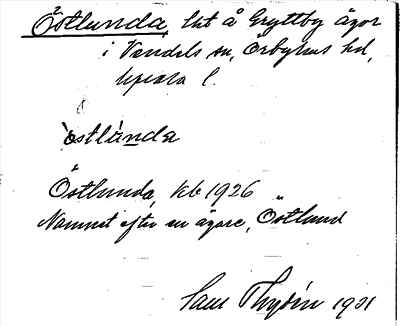 Östlunda, lht å Gryttby ägor
i Vendels sn, Örbyhus hd,
Upsala l.
östlúnda
Östlunda, kb 1926
Namnet efter en ägare, Östlund
1931